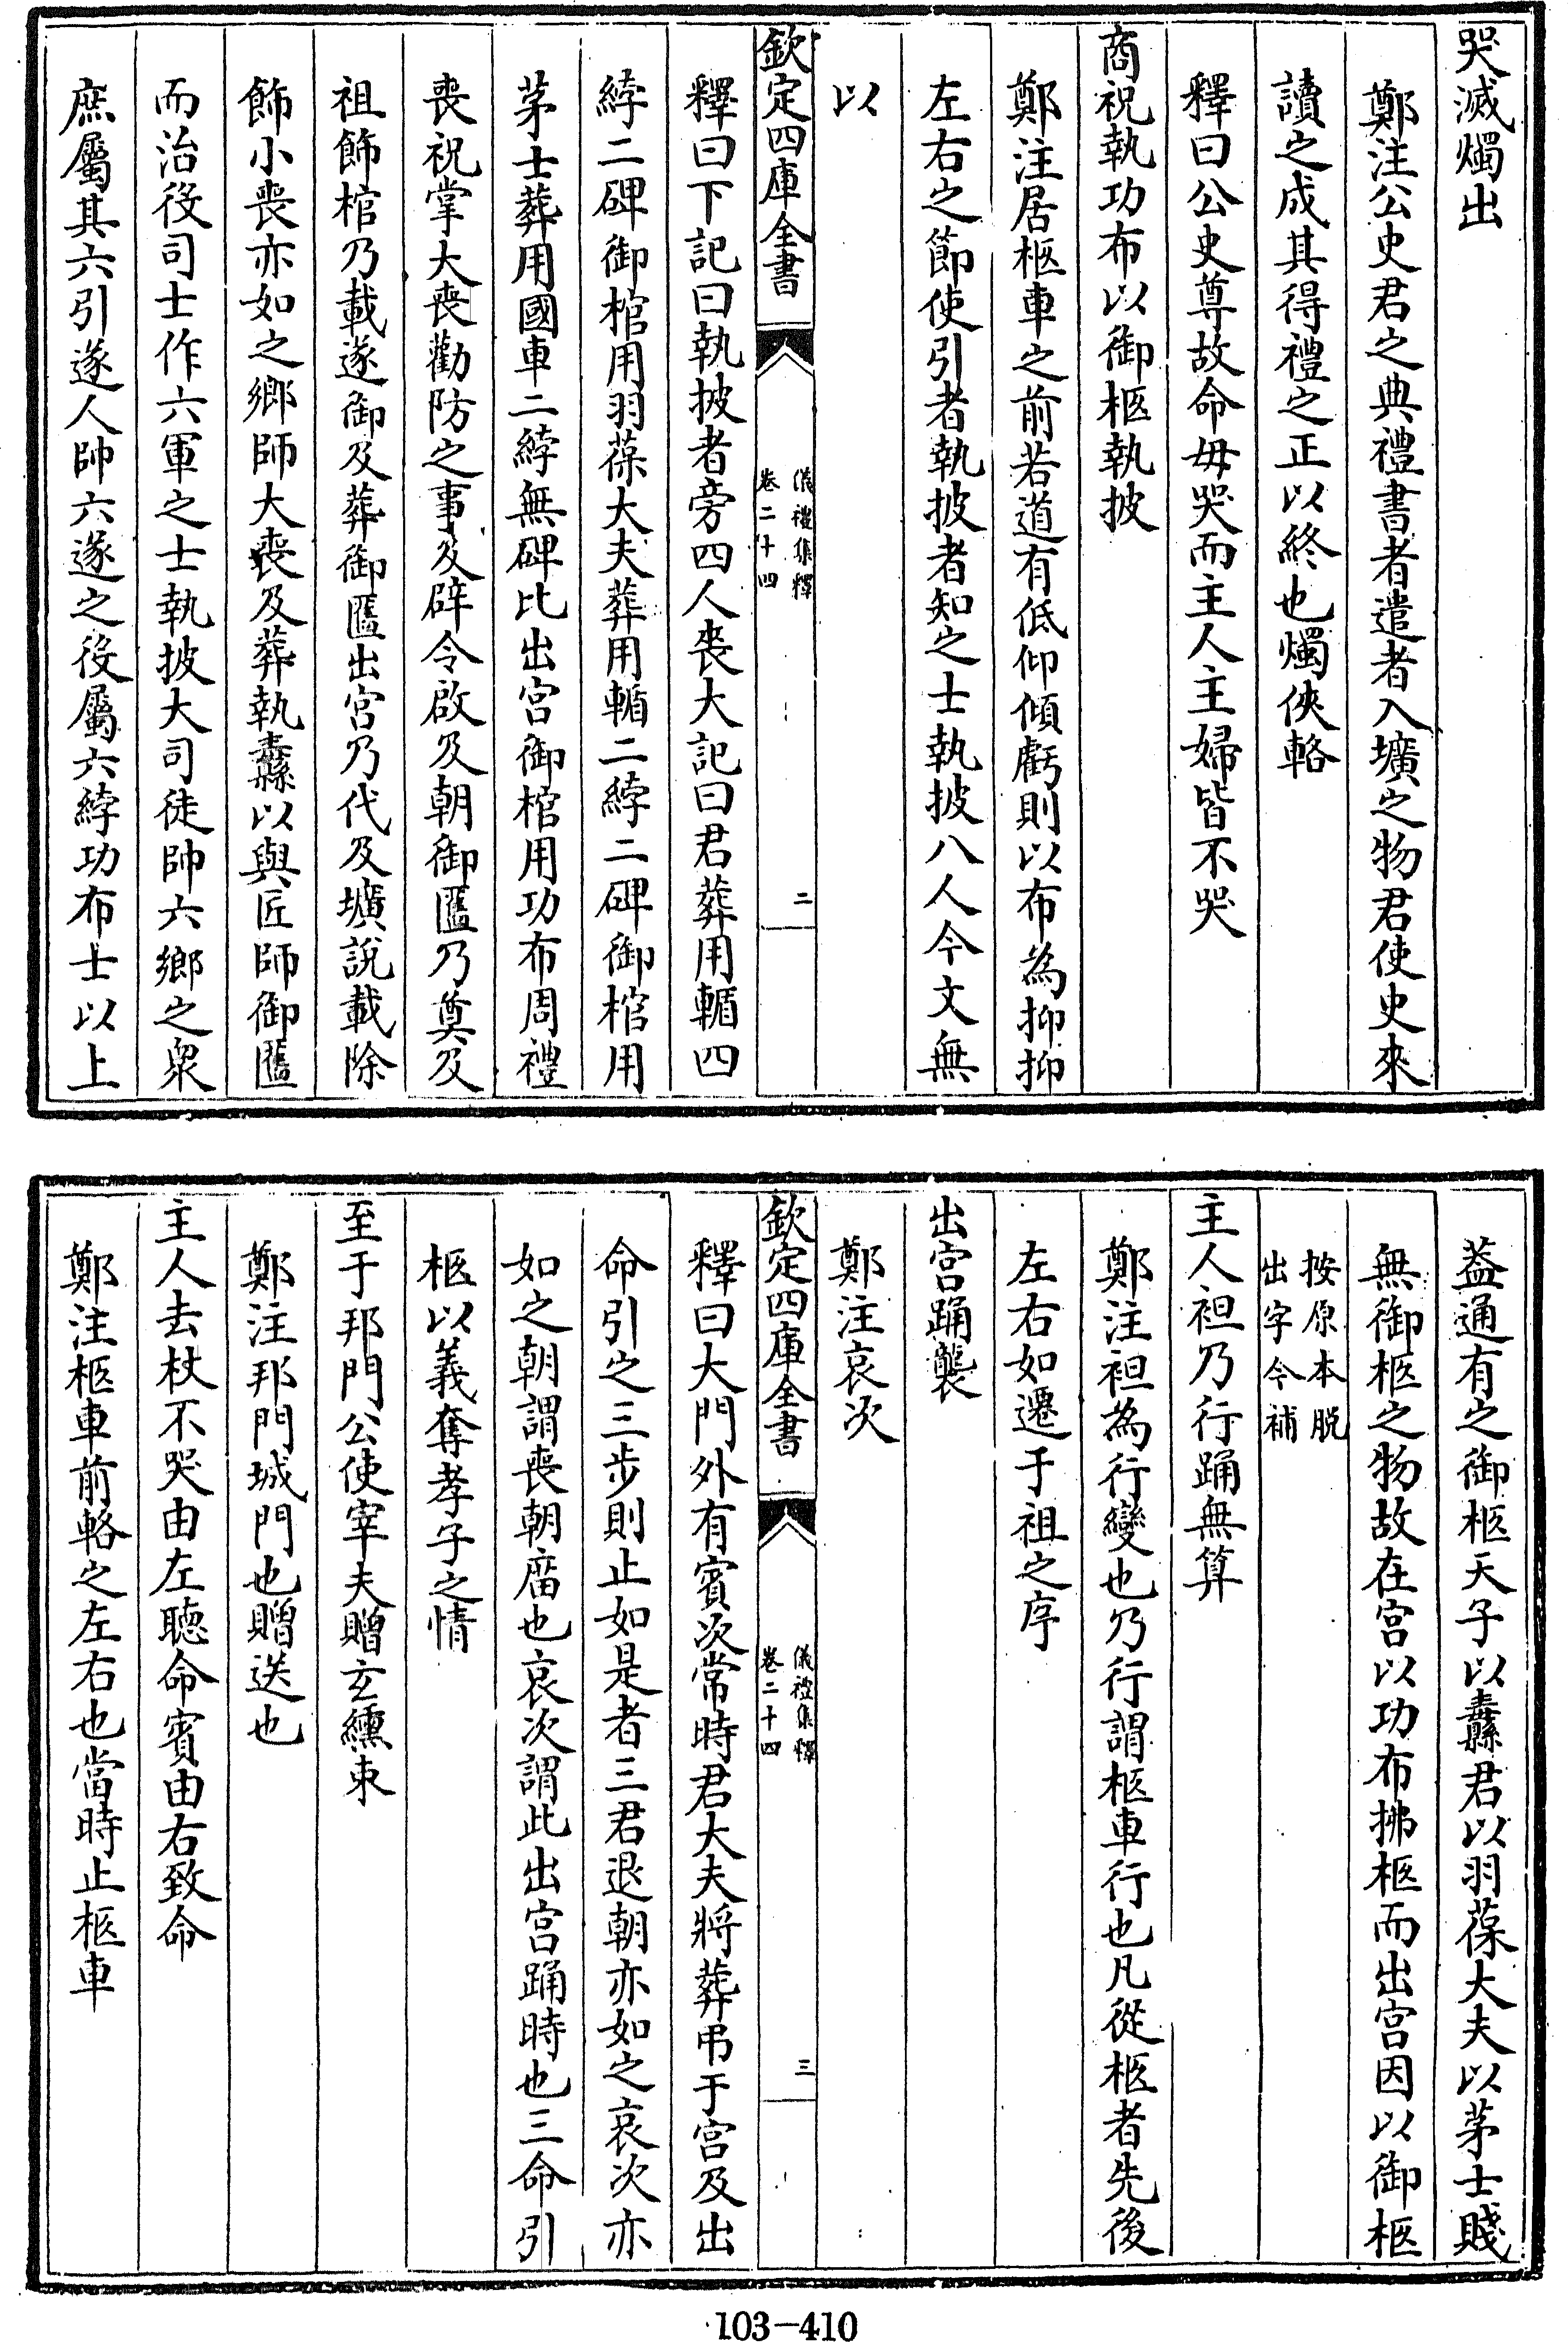 哭滅燭出
鄭注公史君之典禮書者遣者入壙之物君使史來
讀之成其得禮之正以終也燭俠輅
釋曰公史尊故命毋哭而主人主婦皆不哭
商祝執功布以御柩執披
鄭注居柩車之前若道有低仰傾虧則以布為抑抑
左右之節使引者執披者知之士執披八人今文無
以
欽定四庫全書
儀禮集釋
卷二十四
二
釋曰下記曰執披者旁四人喪大記曰君葬用輴四
綍二碑御棺用羽葆大夫葬用輴二綍二碑御棺用
茅士葬用國車二綍無碑比出宫御棺用功布周禮
喪祝掌大喪勸防之事及辟令啟及朝御匶乃奠及
祖飾棺乃載遂御及葬御匶出宫乃代及壙說載除
飾小喪亦如之鄉師大喪及葬執纛以與匠師御匶
而治役司士作六軍之士執披大司徒帥六鄉之衆
庶屬其六引遂人帥六遂之役屬六綍功布士以上
葢通有之御柩天子以纛君以羽葆大夫以茅士賤
無御柩之物故在宫以功布拂柩而出宫因以御柩
按原本脱
出字今補
主人袒乃行踊無算
鄭注袒為行變也乃行謂柩車行也凡從柩者先後
左右如遷于祖之序
出宫踊襲
鄭注哀次
欽定四庫全書
儀禮集釋
卷二十四
三
釋曰大門外有賓次常時君大夫將葬弔于宫及出
命引之三步則止如是者三君退朝亦如之哀次亦
如之朝謂喪朝廟也哀次謂此出宫踊時也三命引
柩以義奪孝子之情
至于邦門公使宰夫贈玄纁束
鄭注邦門城門也贈送也
主人去杖不哭由左聽命賓由右致命
鄭注柩車前輅之左右也當時止柩車
103-410